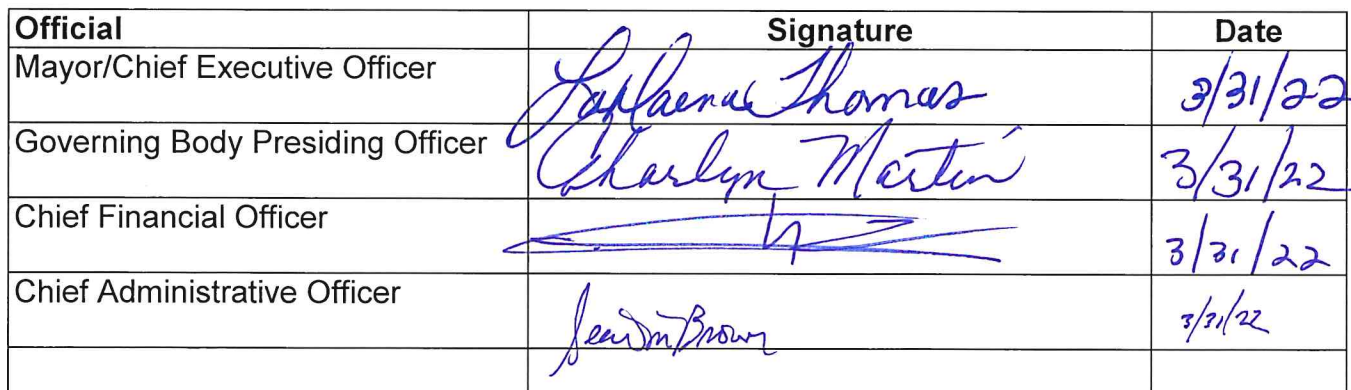 Official Signature Date
Mayor/Chief Executive Officer Thomas 3/31/22
Governing Body Presiding Officer Charlyn Martin 3/31/22
Chief Financial Officer 3/31/22
Chief Administrative Officer Sean M Brown 3/31/22